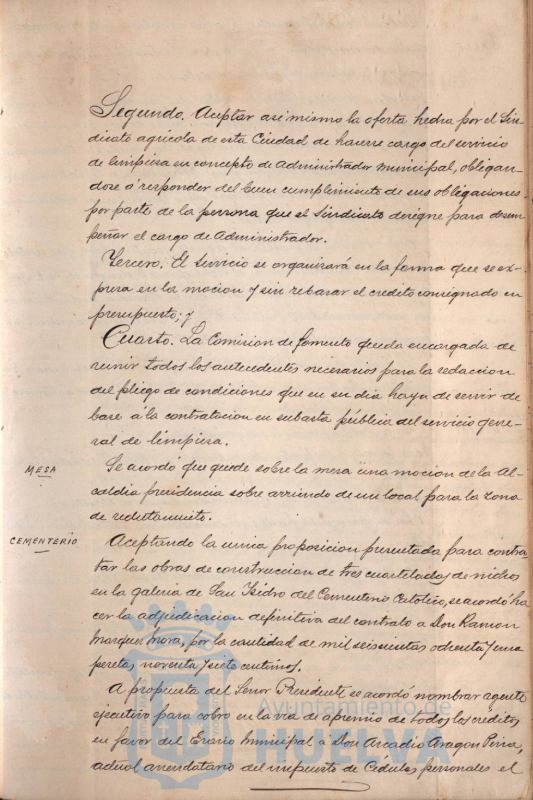 Segundo. Aceptar asi mismo la oferta hecha por el Sin-
dicato agricola de esta Ciudad de hacerse cargo del servicio
de limpiesa en concepto de Administrador municipal, obligan-
dose á responder del buen cumplimiento de sus obligaciones
por parte de la persona que el Sindicato designe para desem
peñar el cargo de Administrador.
Tercero. El servicio se organizará en la forma que se ex-
presa en la mocion y sin rebasar el credito consignado en
presupuesto; y
Cuarto. La Comision de fomento queda encargada de
reunir todos los antecedentes necesarios para la redacion
del pliego de condiciones que en su dia haya de servir de
base á la contratacion en subasta pública del servicio gene-
ral de limpiesa.
MESA
Se acordó que quede sobre la mesa una mocion de la Al-
caldia presidencia sobre arriendo de un local para la zona
de reclutamiento.
CEMENTERIO
Aceptando la unica proposicion presentada para contra-
tar las obras de construccion de tres cuarteladas de nichos
en la galeria de San Isidro del Cementerio Católico, se acordó ha
cer la adjudicacion definitiva del contrato a Don Ramon
Marquez Mora, por la cantidad de mil seiscientas ochenta y una
pesetas noventa y siete centimos.
A propuesta del Señor Presidente se acordó nombrar agente
ejecutivo para cobro en la via de apremio de todos los créditos
en favor del Erario Municipal á Don Arcadio Aragon
actual arrendatario del impuesto de Cédulas personales el
Ayuntamiento de
HUELVA